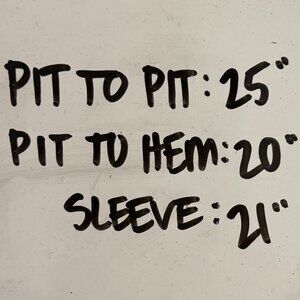 PIT TO PIT: 25"
PIT TO HEM: 20"
SLEEVE: 21"